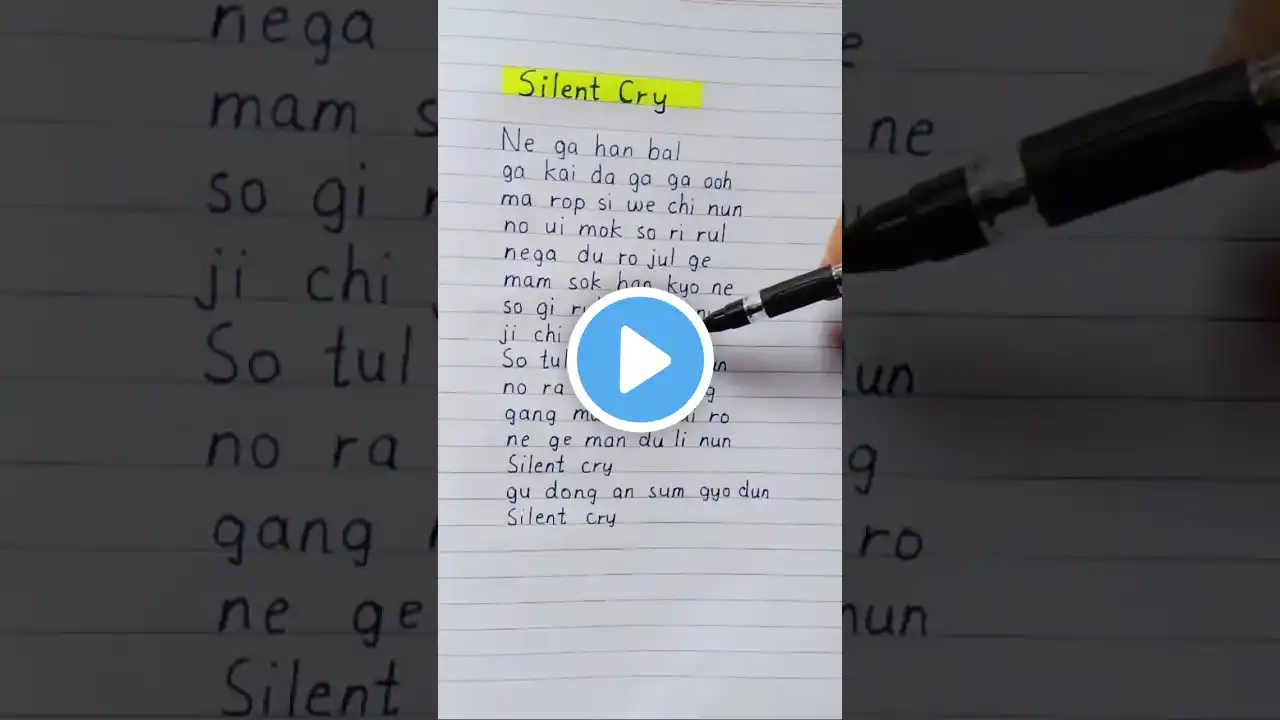 Silent Cry
Ne ga han bal
ga kai da ga ga ooh
ma rop si we chi nun
no ui mok so ri rul
nega du ro jul ge
mam sok han kyo ne
so gi
ji chi
So tul
no ra
gang ro
ne ge man du li nun
Silent cry
gu dong an sum gyo dun
Silent cry